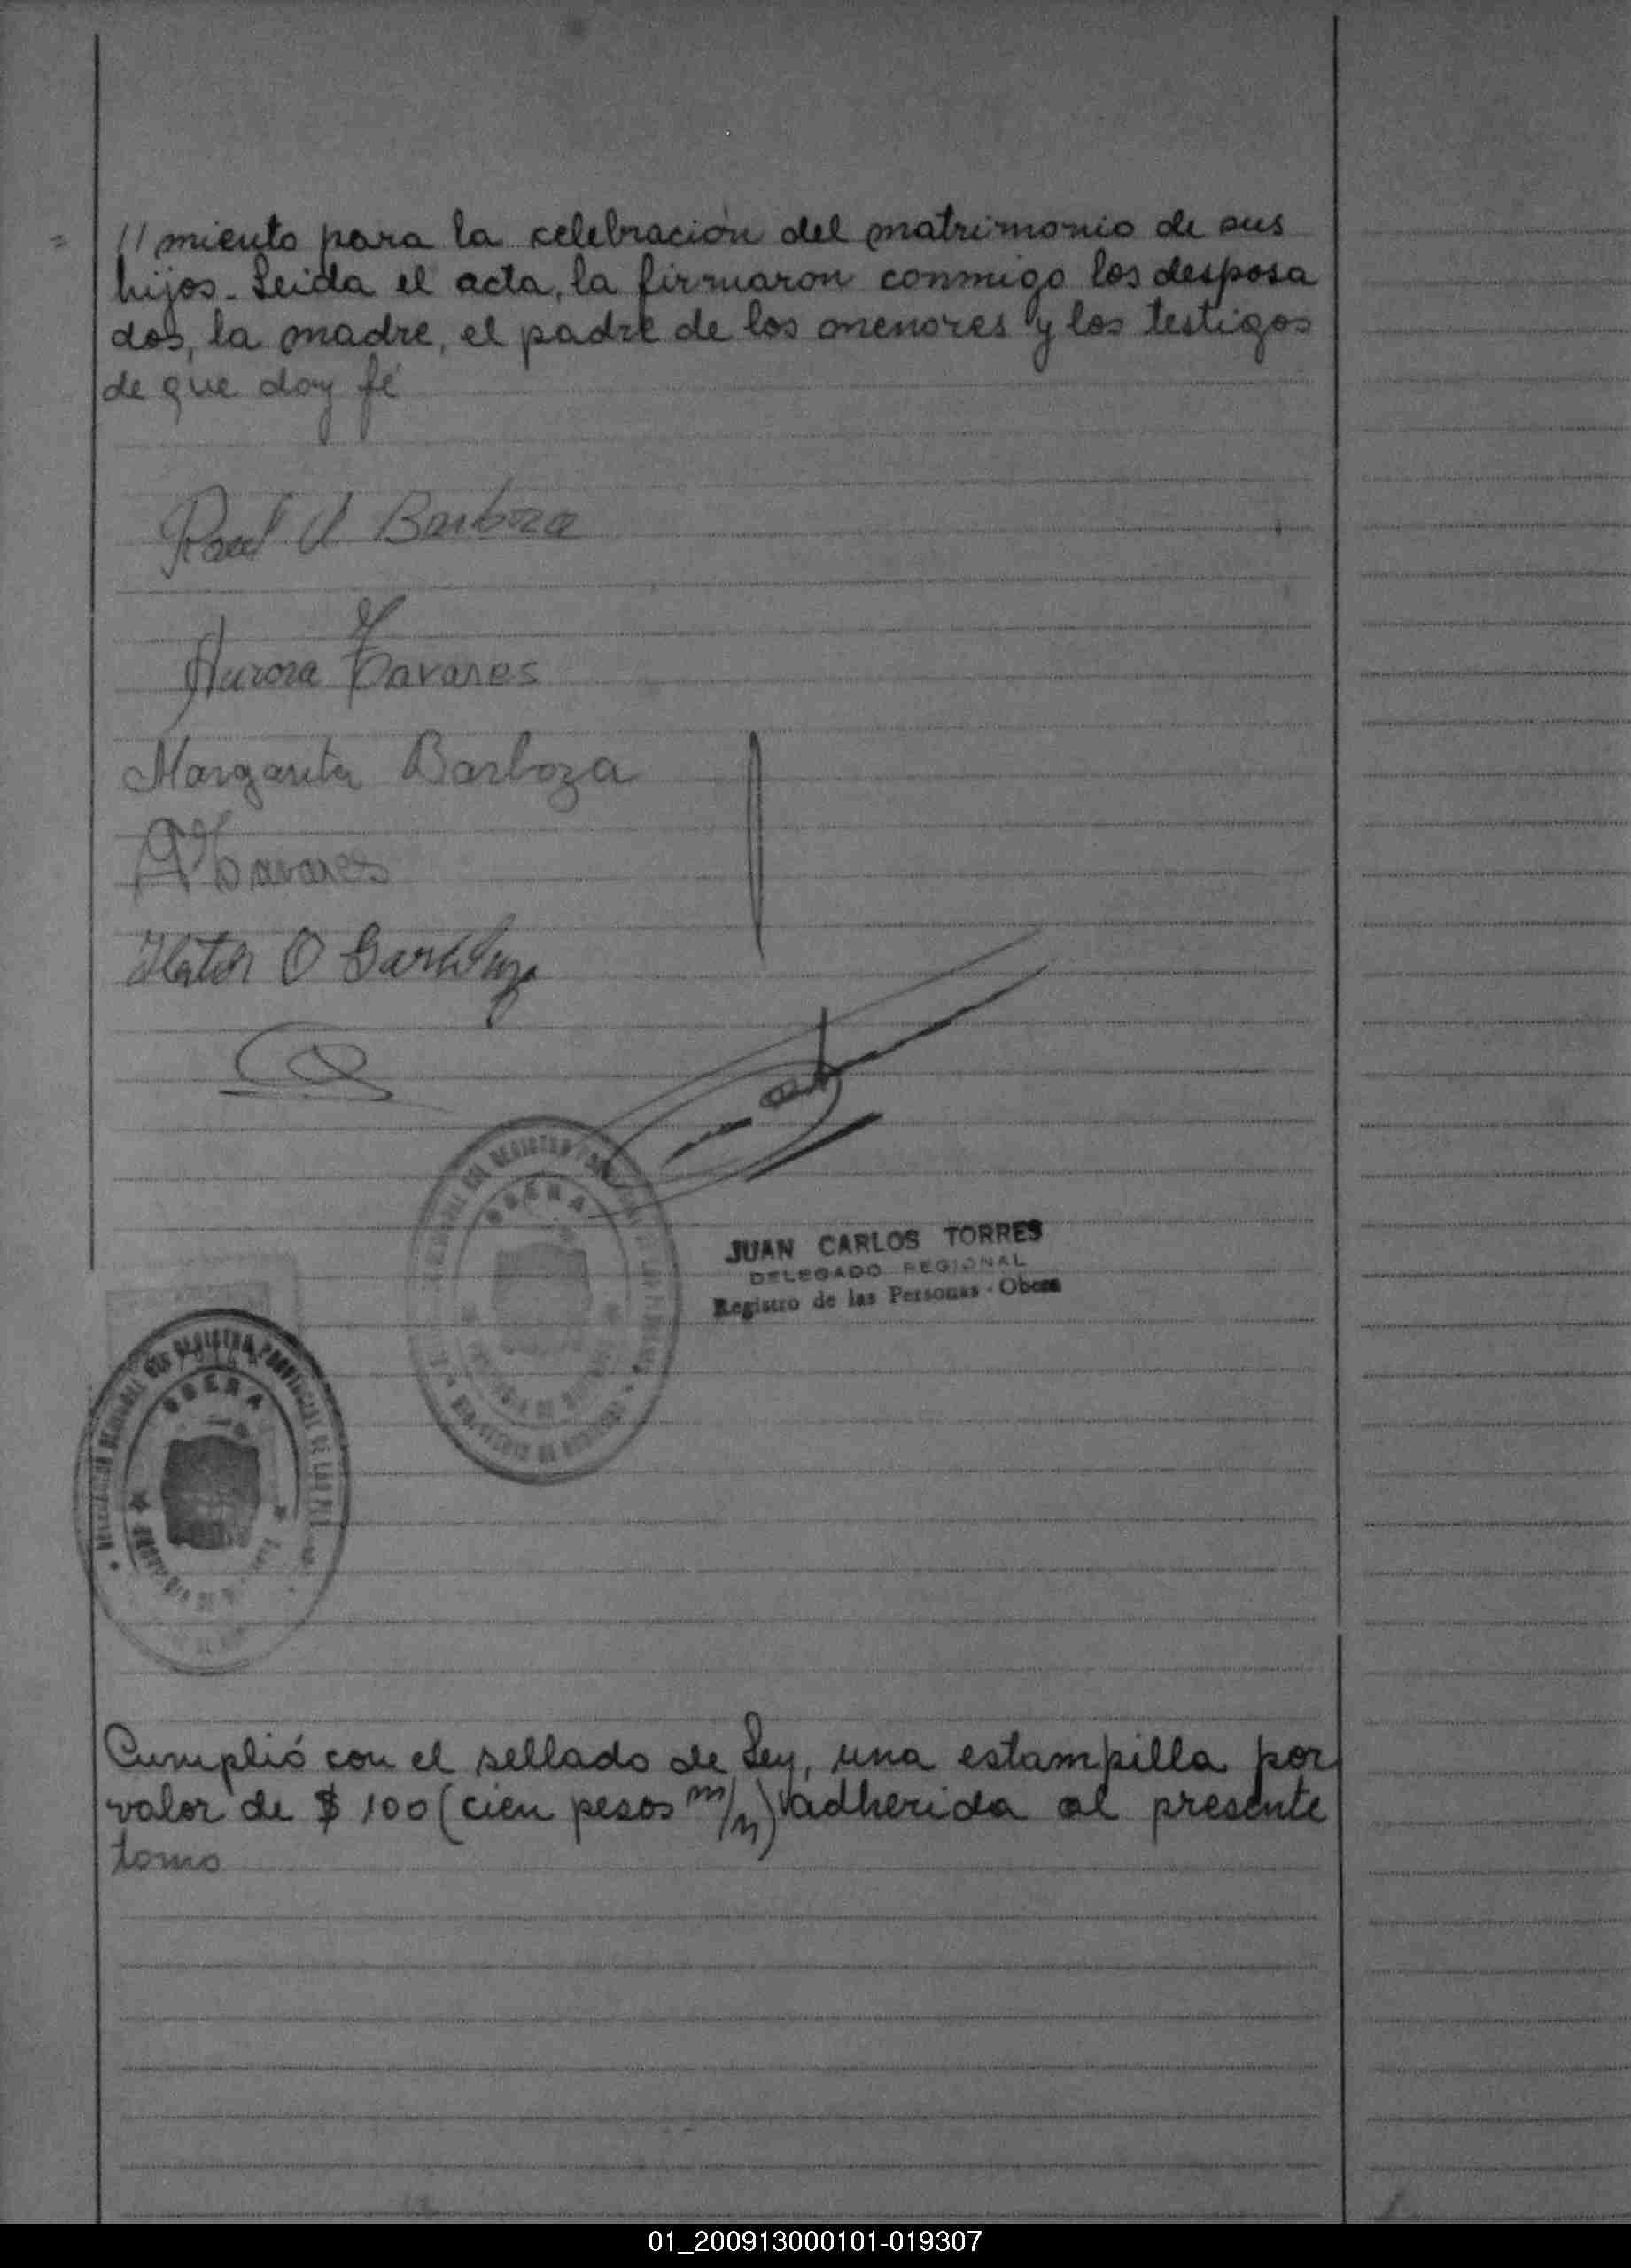 // miento para la celebración del matrimonio de sus
hijos. Leida el acta, la firmaron conmigo los desposa
dos, la madre, el padre de los menores y los testigos
de que doy fé
Raul A Barboza
Aurora Tavares
Margarita Barboza
Tavares
O
OBERA
JUAN CARLOS TORRES
DELEGADO REGIONAL
Registro de las Personas - Obera
DELEGACION REGIONAL DEL REGISTRO PROVINCIAL DE LAS PERSONAS
OBERA
Cumplió con el sellado de Ley, una estampilla por
valor de $ 100 (cien pesos m/n) adherida al presente
tomo
01_200913000101-019307